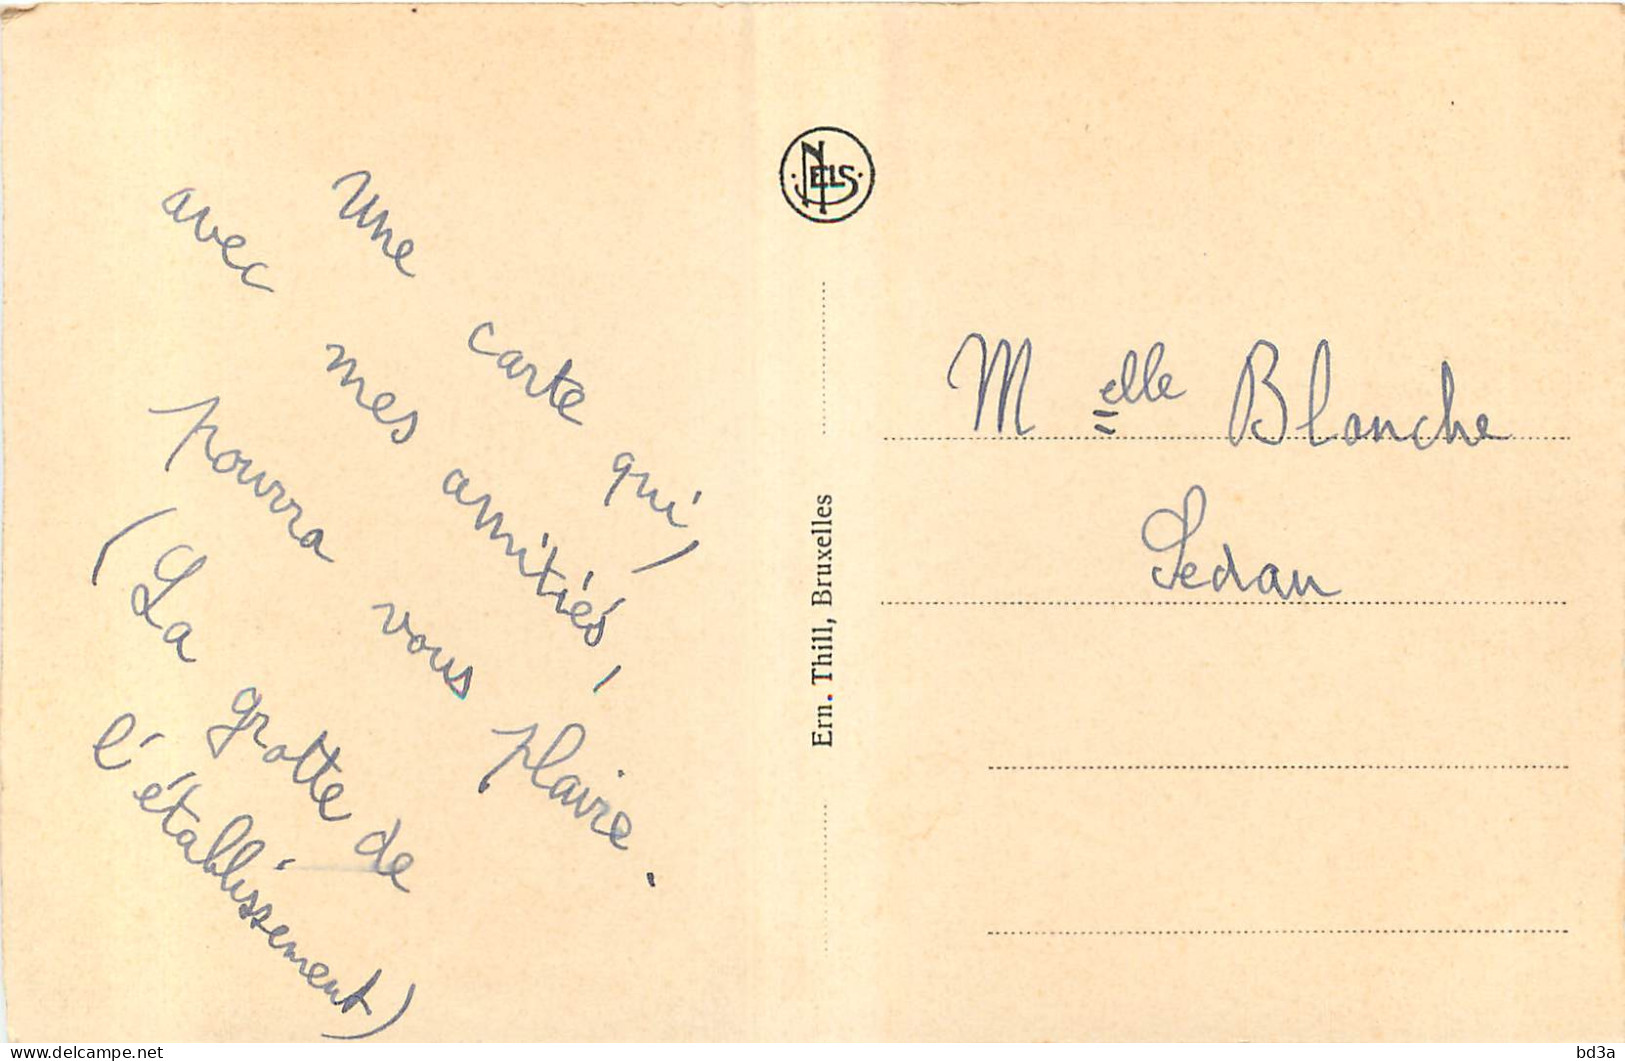 Une carte qui,
avec mes amitiés,
pourra vous plaire.
(La grotte de
l'établissement)
NELS
Ern. Thill, Bruxelles
Melle Blanche
Sedan
delcampe.net
bd3a